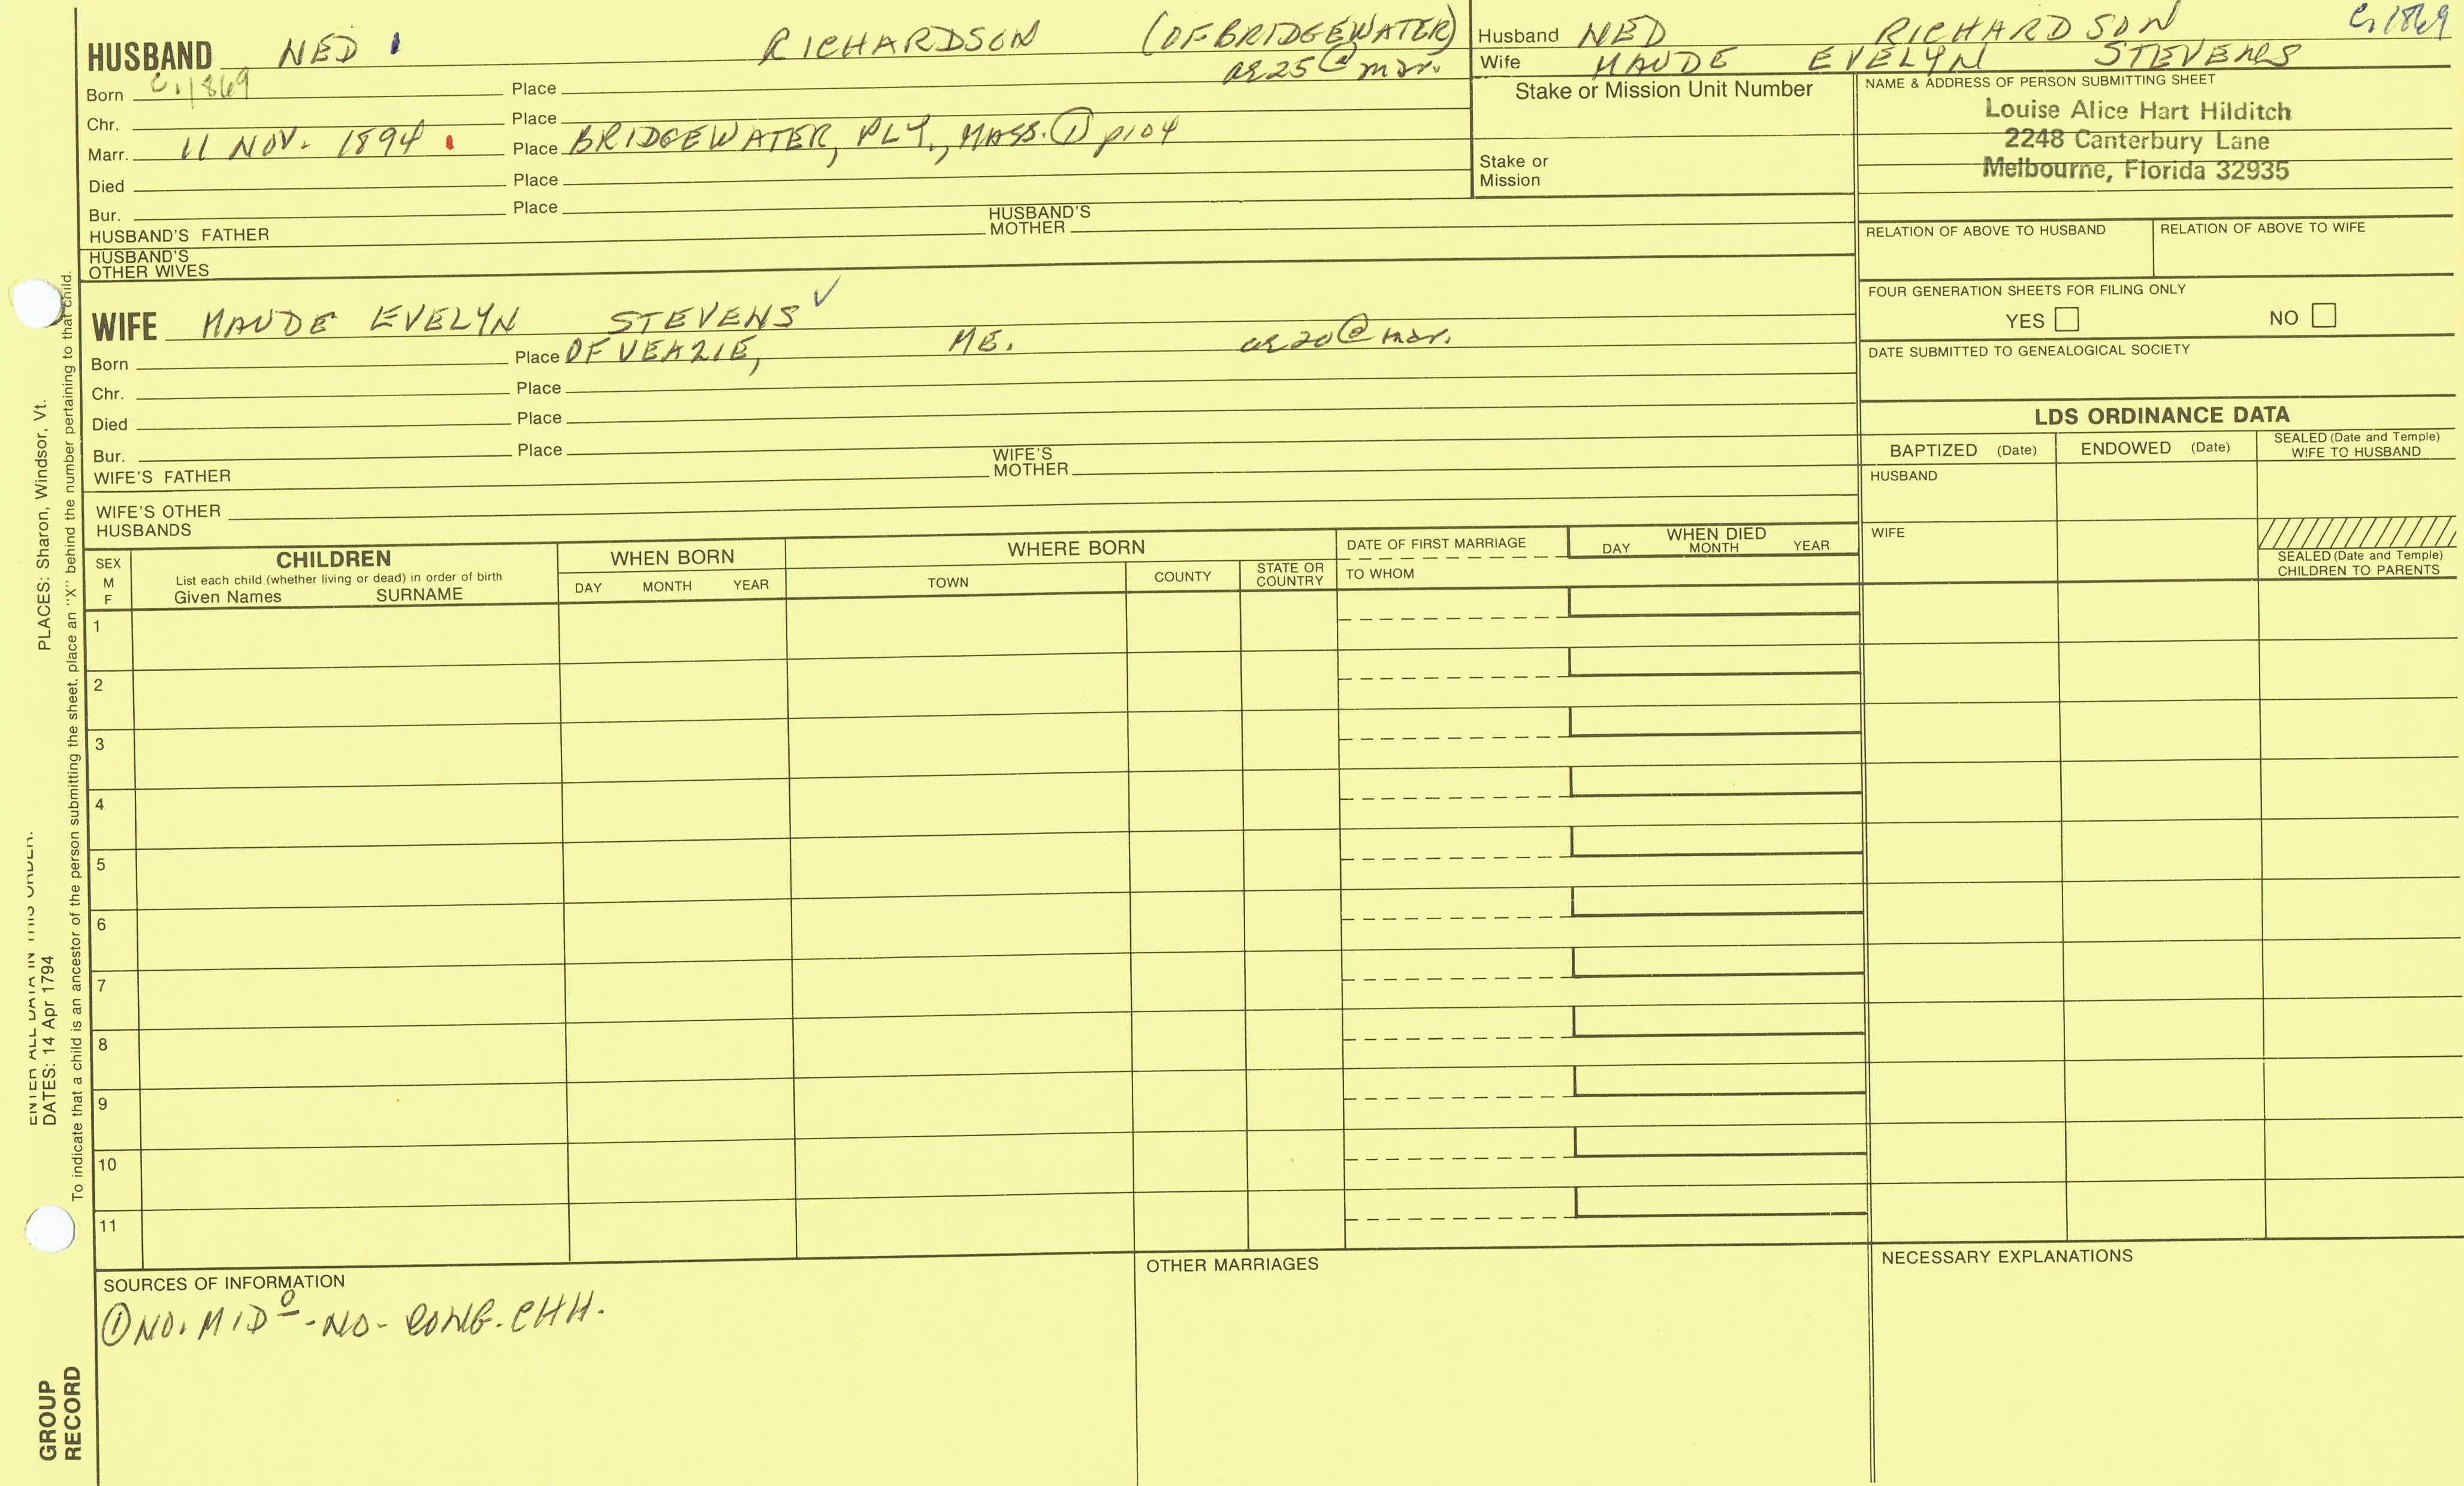 HUSBAND NED RICHARDSON (OF BRIDGEWATER)
ae 25 @ mar.
Born C. 1869 Place
Chr. Place
Marr. 11 NOV. 1894 Place BRIDGEWATER, PLY., MASS. ① p104
Died Place
Bur. Place
HUSBAND'S FATHER HUSBAND'S MOTHER
HUSBAND'S OTHER WIVES
Husband NED RICHARDSON C. 1869
Wife MAUDE EVELYN STEVENS
Stake or Mission Unit Number
Stake or
Mission
NAME & ADDRESS OF PERSON SUBMITTING SHEET
Louise Alice Hart Hilditch
2248 Canterbury Lane
Melbourne, Florida 32935
RELATION OF ABOVE TO HUSBAND RELATION OF ABOVE TO WIFE
FOUR GENERATION SHEETS FOR FILING ONLY
YES NO
DATE SUBMITTED TO GENEALOGICAL SOCIETY
WIFE MAUDE EVELYN STEVENS ✓
Born Place OF VEAZIE, ME. ae 20 @ mar.
Chr. Place
Died Place
Bur. Place
WIFE'S FATHER WIFE'S MOTHER
WIFE'S OTHER
HUSBANDS
LDS ORDINANCE DATA
BAPTIZED (Date) ENDOWED (Date) SEALED (Date and Temple)
WIFE TO HUSBAND
HUSBAND
WIFE
SEALED (Date and Temple)
CHILDREN TO PARENTS
SEX
M
F
CHILDREN
List each child (whether living or dead) in order of birth
Given Names SURNAME
WHEN BORN
DAY MONTH YEAR
WHERE BORN
TOWN COUNTY STATE OR
COUNTRY
DATE OF FIRST MARRIAGE
TO WHOM
WHEN DIED
DAY MONTH YEAR
1
2
3
4
5
6
7
8
9
10
11
SOURCES OF INFORMATION
① NO. MIDO - NO - CONG. CHH.
OTHER MARRIAGES
NECESSARY EXPLANATIONS
PLACES: Sharon, Windsor, Vt.
ENTER ALL DATA IN THIS ORDER:
DATES: 14 Apr 1794
To indicate that a child is an ancestor of the person submitting the sheet, place an "X" behind the number pertaining to that child.
GROUP
RECORD